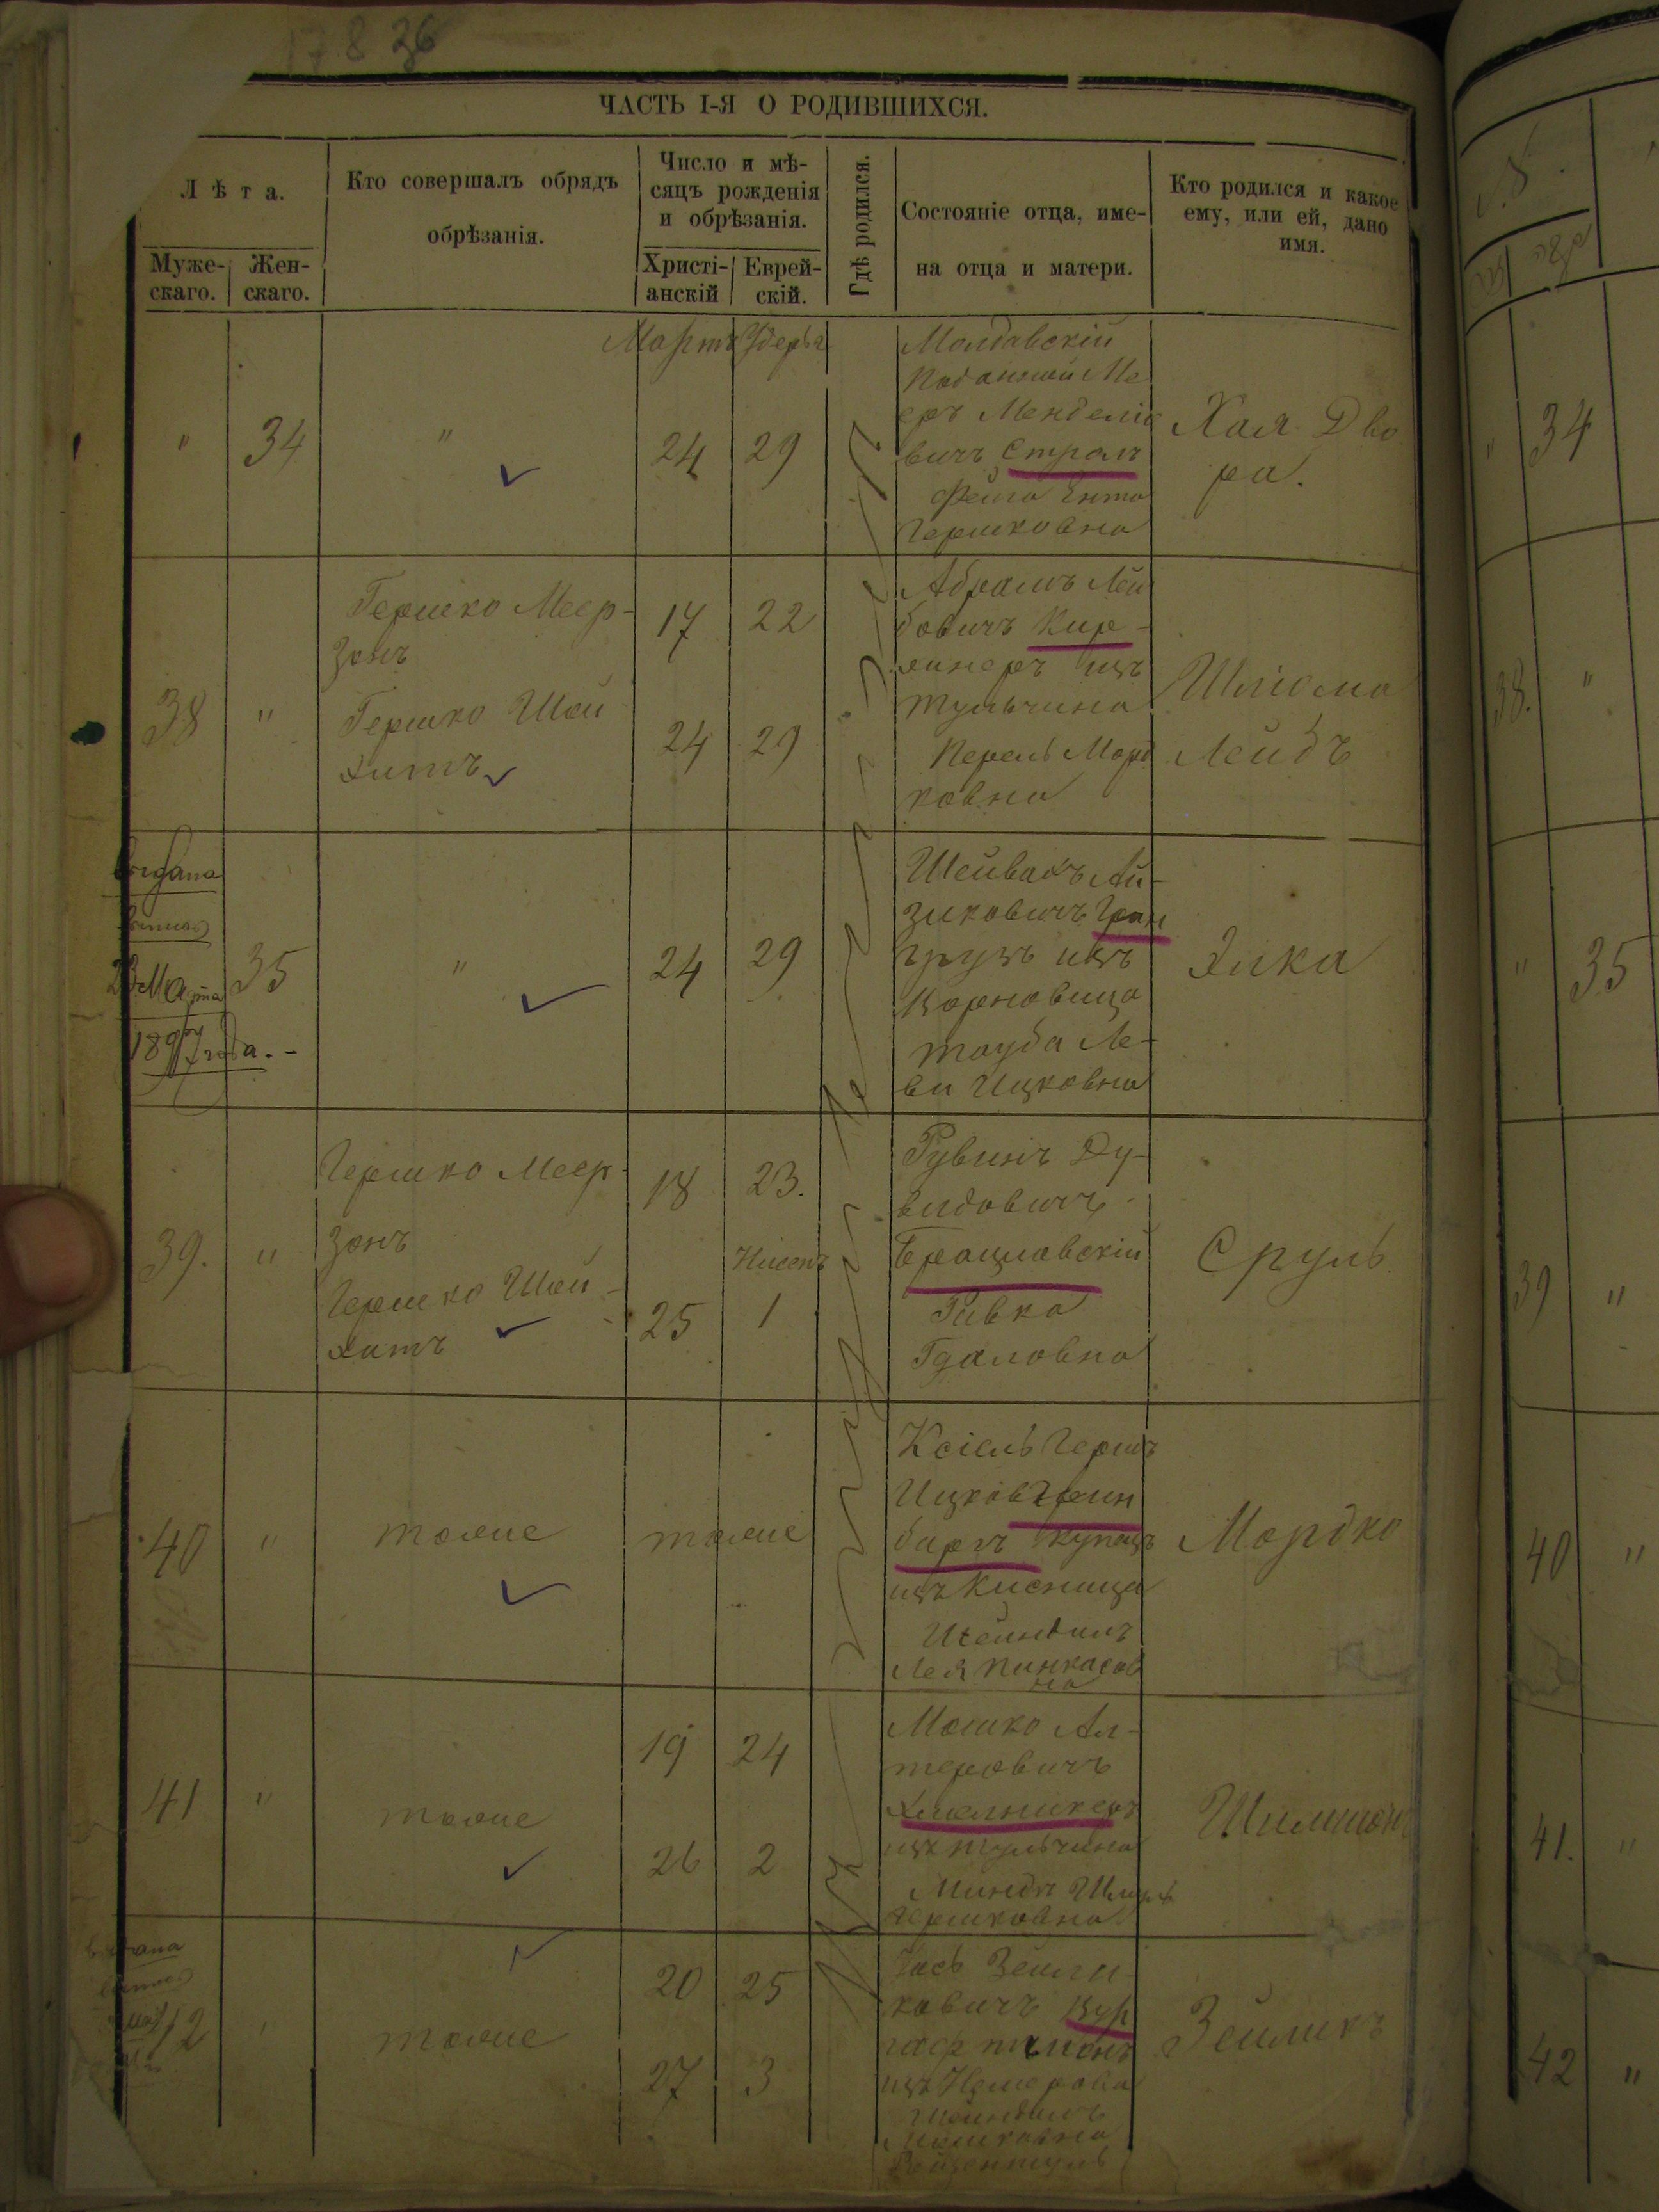 36
ЧАСТЬ I-Я О РОДИВШИХСЯ.
Лѣта.
Муже-
скаго.
Жен-
скаго.
Кто совершалъ обрядъ
обрѣзанія.
Число и мѣ-
сяцъ рожденія
и обрѣзанія.
Христі-
анскій
Еврей-
скій.
Гдѣ родился.
Состояніе отца, име-
на отца и матери.
Кто родился и какое
ему, или ей, дано
имя.
Мартъ
"
34
"
24
29
Молдавскій
Меръ Менделіо
вичъ Страль
Фейга Ента
Гершковна
Хая Дво
ра.
38
"
Гершко Меер-
зонъ
Гершко Шей
хитъ
17
22
24
29
Абрамъ Лей
бовичъ Кир-
жнеръ изъ
Тульчина
Перель Морд
ковна
Шлiома
Лейбъ
Марта
1897 года. -
35
"
24
29
Шейвахъ Ай-
зиковичъ Гран
груzъ изъ
Ворновица
Тауба Ле-
ви Ицковна
Элка
39.
"
Гершко Меер-
зонъ
Гершко Шей-
хитъ
18
23.
Нисенъ
25
1
Рувинъ Ду-
видовичъ
Брацлавскій
Ривка
Гдаловна
Сруль
40
"
тоже
тоже
Ксіель Гершъ
Ицков Грин
бергъ купецъ
изъ Кисница
Шейндиль
Лея Пинкасов
на
Мордко
41
"
тоже
19
24
26
2
Мошко Ал-
теровичъ
Хмельникеръ
изъ Тульчина
Миндя
Гершковна
Шимшонъ
42
"
тоже
20
25
27
3
Зейли
ковичъ Вур
гафтманъ
изъ Немерова
Шейндиль
Мошковна
Зейликъ
34
38.
"
"
35
39
"
40
"
41.
"
42
"